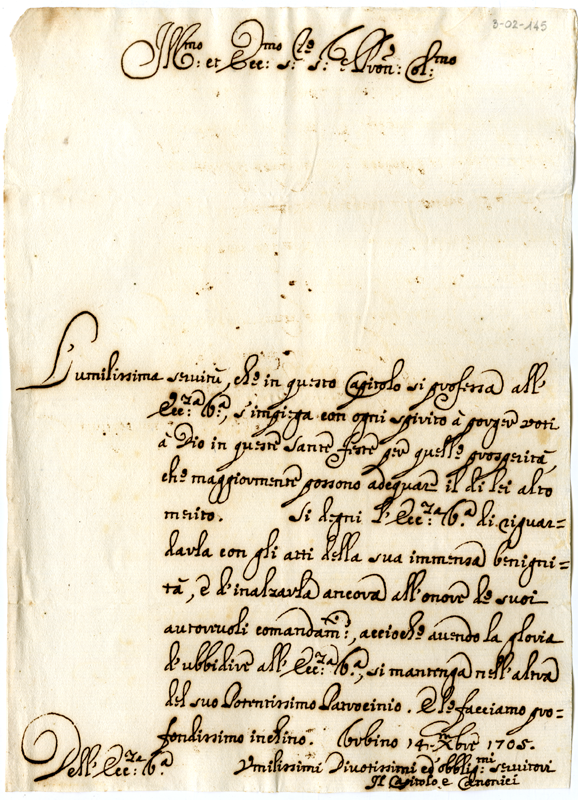 3-02-145
Ill:mo et Ecc:mo S:re S:r e Pron: Col:mo
L'umilissima servitù, che in questo Capitolo si professa all'
Ecc:za V:a, s'impiega con ogni spirito à porger voti
à Dio in queste Sante feste per quelle prosperità,
che maggiormente possono adeguare il di lei alto
merito. Si degni l'Ecc:za V:a di riguar=
darla con gli atti della sua immensa benigni=
tà, e d'inalzarla ancora all'onore de suoi
autorevoli comandam:ti, acciochè avendo la gloria
d'ubbidire all'Ecc:za V:a, si mantenga nell'altra
del suo Potentissimo Patrocinio. E le facciamo pro=
fondissimo inchino. Urbino 14 Xbre 1705.
Dell'Ecc:za V:a
Umilissimi Divotissimi ed obblig:mi servitori
Il Capitolo, e Canonici